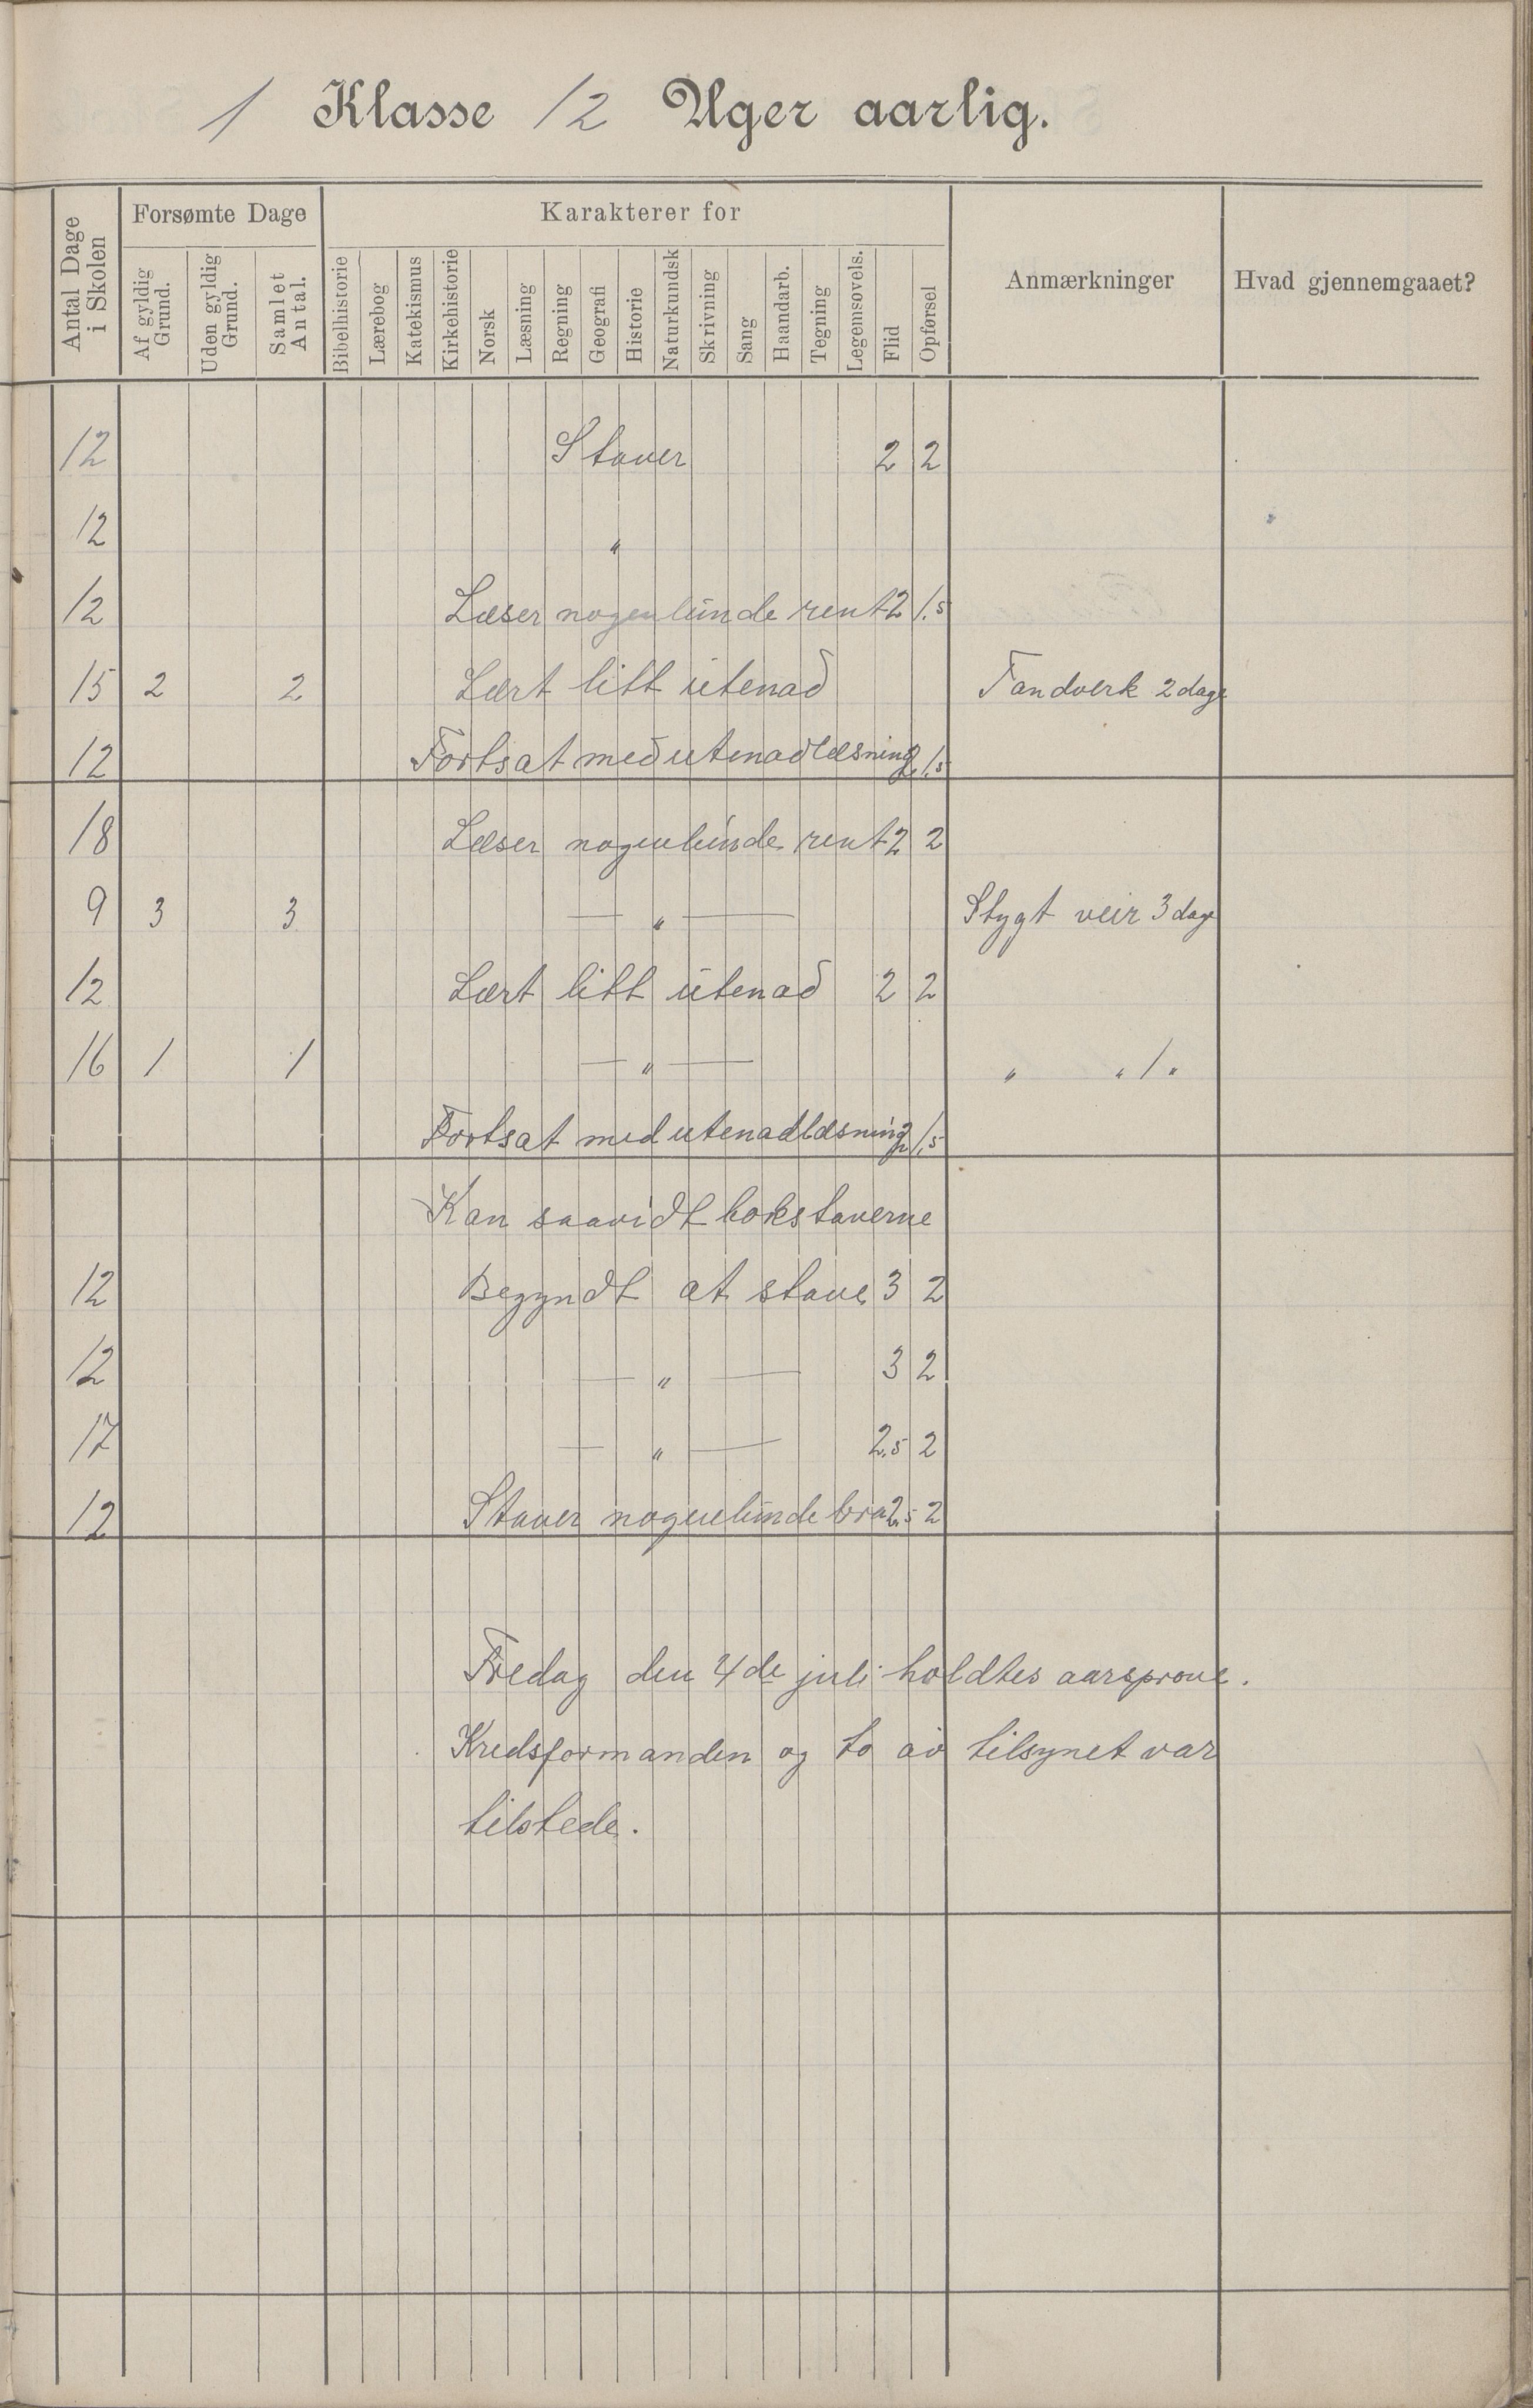 1 Klasse 12 Uger aarlig.
Antal Dage i Skolen
Forsømte Dage
Af gyldig Grund.
Uden gyldig Grund.
Samlet Antal.
Karakterer for
Bibelhistorie
Lærebog
Katekismus
Kirkehistorie
Norsk
Læsning
Regning
Geografi
Historie
Naturkundsk
Skrivning
Sang
Haandarb.
Tegning
Legemsøvels.
Flid
Opførsel
Anmærkninger
Hvad gjennemgaaet?
12 Staver 2 2
12 "
12 Læser nogenlunde rent 2 1.5
15 2 2 Lært litt utenad Tandverk 2 dage
12 Fortsat med utenadlæsning 2 1.5
18 Læser nogenlunde rent 2 2
9 3 3 — " — Stygt veir 3 dage
12 Lært litt utenad 2 2
16 1 1 — " — " " 1 "
Fortsat med utenadlæsning 2 1.5
Kan saavidt bokstaverne
12 Begyndt at stave 3 2
12 — " — 3 2
17 — " — 2.5 2
12 Staver nogenlunde bra 2.5 2
Fredag den 4de juli holdtes aarsprøve.
Kredsformanden og to av tilsynet var
tilstede.